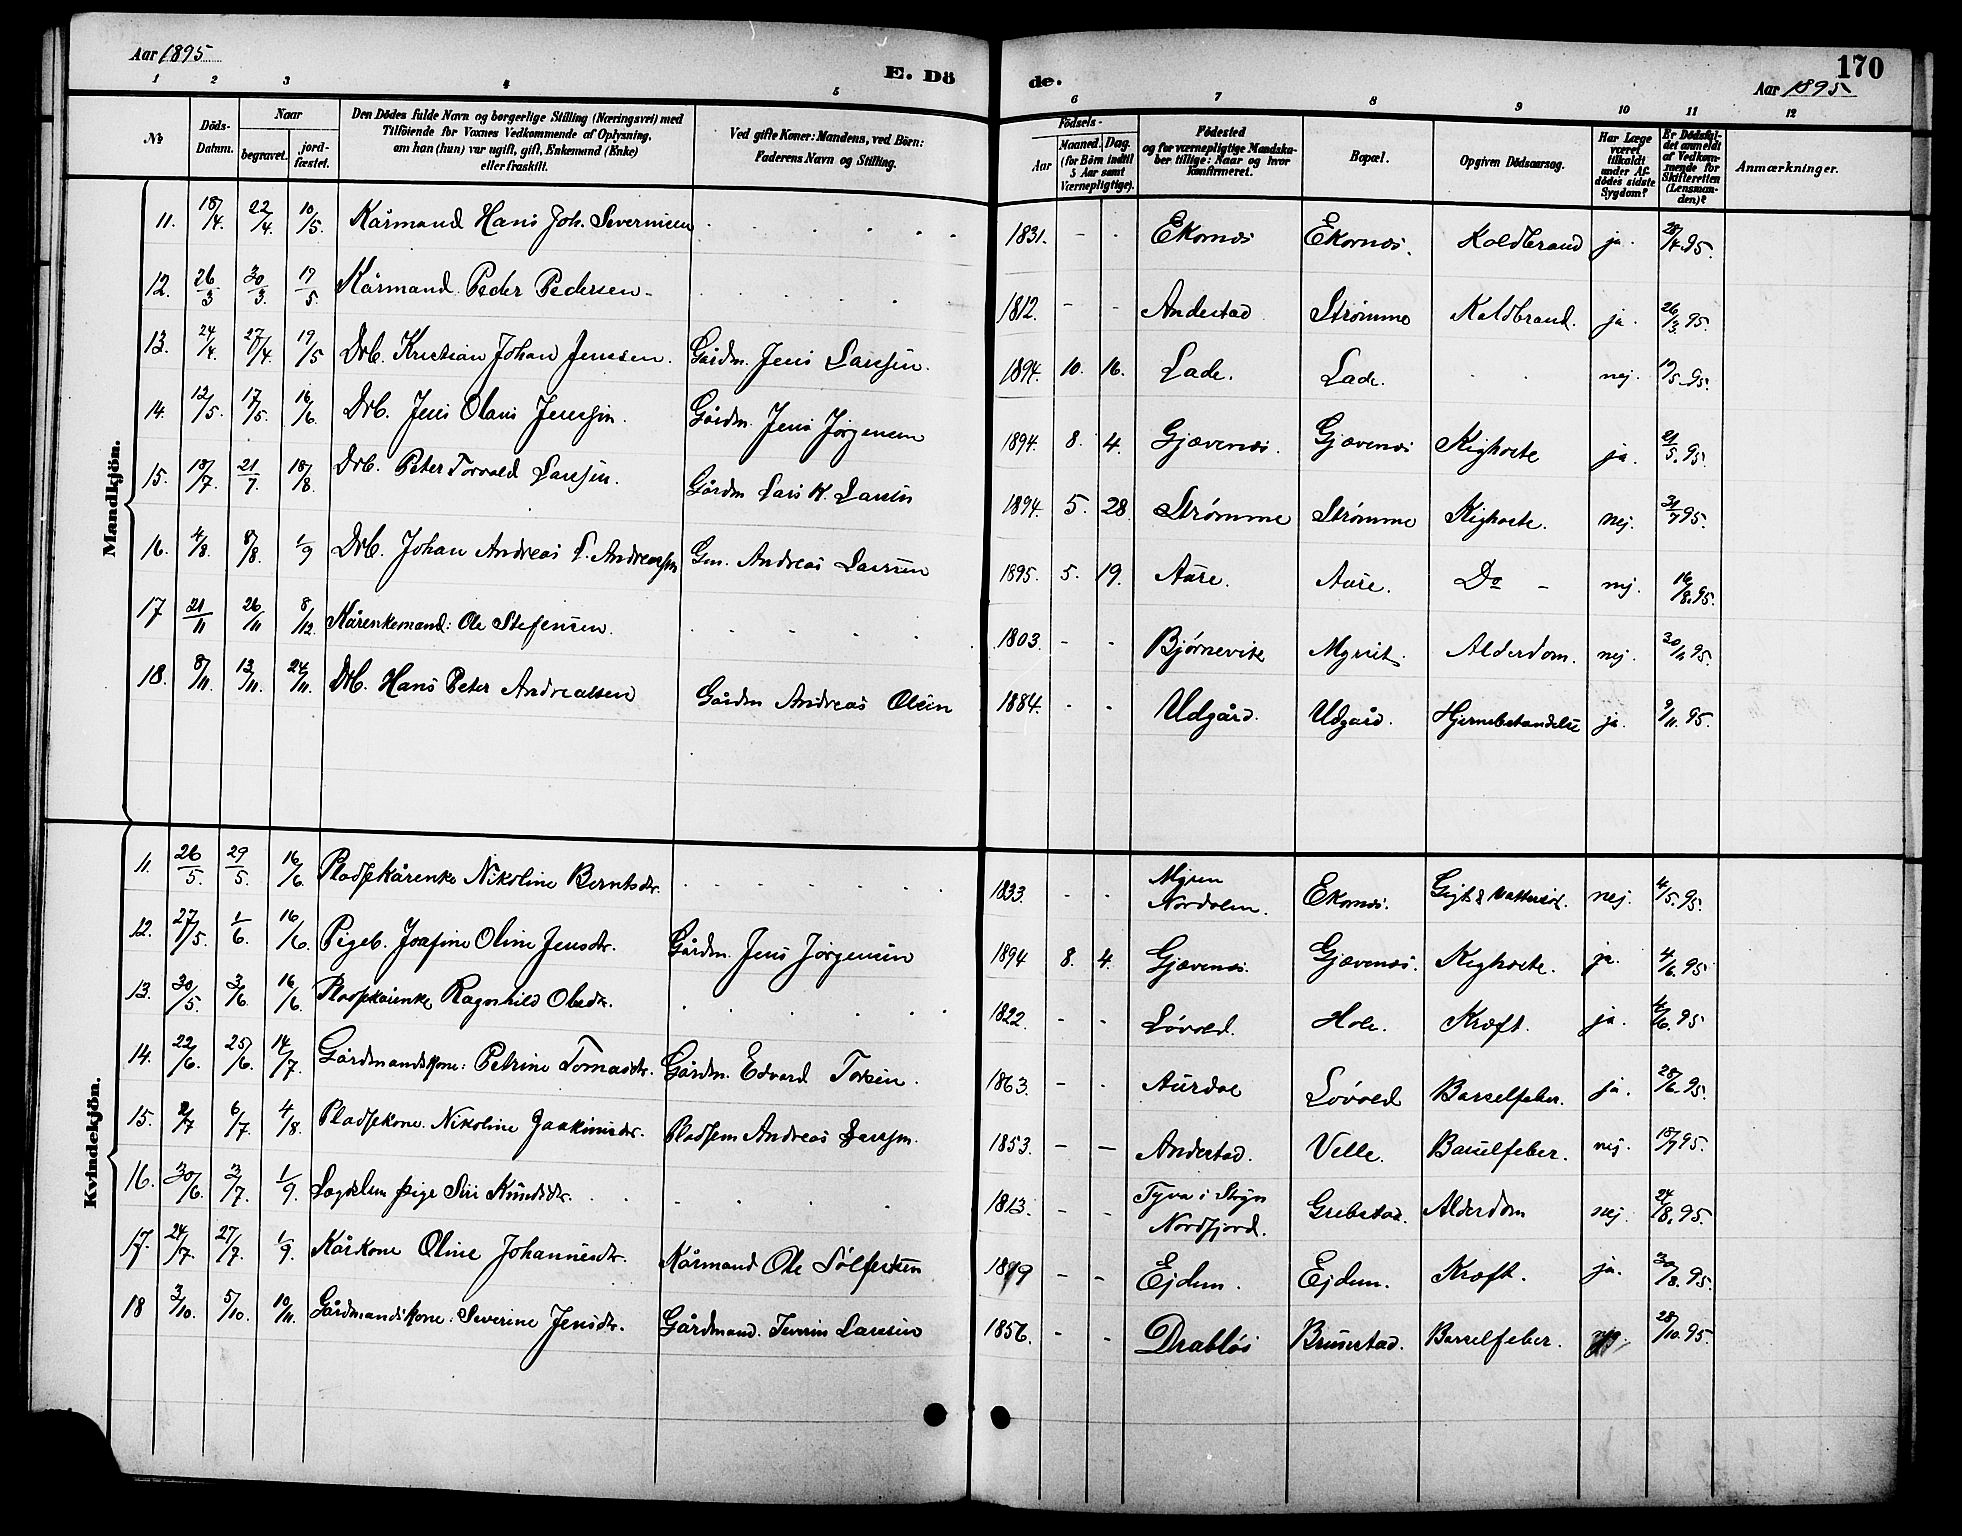 Aar 1895
E. Dö
de.
170
Aar 1895
1 2 3 4 5 6 7 8 9 10 11 12
No
Döds-
Datum.
Naar
begravet.
jord-
fæstet.
Den Dödes fulde Navn og borgerlige Stilling (Næringsvei) med
Tilföiende for Voxnes Vedkommende af Oplysning,
om han (hun) var ugift, gift, Enkemand (Enke)
eller fraskilt.
Ved gifte Koner: Mandens, ved Börn:
Faderens Navn og Stilling.
Födsels-
Aar
Maaned.
Dag.
(for Börn indtil
5 Aar samt
Værnepligtige).
Födested
og for værnepligtige Mandska-
ber tillige: Naar og hvor
konfirmeret.
Bopæl.
Opgiven Dödsaarsag.
Har Læge
været
tilkaldt
under Af-
dödes sidste
Sygdom?
Er Dödsfal-
det anmeldt
af Vedkom-
mende for
Skifteretten
(Lensman-
den)?
Anmærkninger.
Mandkjön.
11. 18/4. 22/4. 10/5. Kårmand Hans Joh. Severinsen 1831. - - Ekornæs Ekornæs. Koldbrand ja. 28/4 95.
12. 26/3 30/3. 19/5. Kårmand Peder Pedersen - 1812. - - Andestad Strømme Koldbrand. ja. 26/3 95.
13. 24/4. 27/4. 19/5 Drb. Kristian Johan Jenssen. Gårdm. Jens Larssen. 1894. 10. 16. Lade. Lade. nej. 19/5 95.
14. 12/5. 17/5. 16/6 Drb. Jens Olaus Jenssen. Gårdm. Jens Jørgensen 1894. 8. 4. Gjævenæs. Gjævenæs Kighoste ja. 21/5. 95.
15. 18/7. 21/7 18/8. Drb. Peter Torvald Larssen. Gårdm Lars K. Larsen 1894. 5. 28 Strømme Strømme Kighoste. nej. 31/7 95.
16. 4/8. 8/8. 1/9 Drb. Johan Andreas L. Andreassen Gm. Andreas Larssen 1895. 5. 19. Aure. Aure. Do - nej. 16/8. 95.
17 21/11 26/11 8/12. Kårenkemand: Ole Stefensen. 1803. - - Bjørnevik Myrset. Alderdom. nej. 30/11 95.
18. 8/11. 13/11. 24/11. Drb. Hans Peter Andreassen Gårdm Andreas Olsen 1884. - - Udgård. Udgård. Hjernebetændelse ja. 9/11. 95.
Kvindekjön.
11 26/5. 29/5. 16/6. Pladskårenke Nikoline Berntsdr. 1833. - - Myren Nordalen. Ekornæs. Gigt & Vattersot. nej. 4/5. 95.
12. 27/5. 1/6. 16/6. Pigeb. Josefine Oline Jensdr. Gårdm. Jens Jørgensen 1894 8. 4. Gjævenæs. Gjævenæs. Kighoste. ja. 4/6. 95
13. 30/5. 3/6. 16/6. Pladskårenke Ragnhild Olsdr. 1822. - - Løvold. Hole. Kræft. ja. 4/6. 95
14. 22/6. 25/6. 14/7. Gårdmandskone: Petrine Tomasdr. Gårdm. Edvard Torsen. 1863. - - Aurdal Løvold Barselfeber. ja. 28/6 95.
15. 2/7 6/7. 4/8 Pladskone. Nikoline Joakimsdr. Pladsem Andreas Larssen. 1853. - - Andestad. Velle. Barselfeber. nej. 18/7 95.
16. 30/6 3/7. 1/9. Lægdslem pige Siri Knudsdr. 1813. - - Tyva i Stryn Nordfjord. Grebstad. Alderdom nej. 24/8. 95.
17. 24/7. 27/7. 1/9. Kårkone Oline Johannesdr. Kårmand Ole Sølfestsen 1819 - - Ejdem. Ejdem. Kræft. ja. 30/8. 95.
18 3/10. 5/10. 10/11. Gårdmandskone: Severine Jensdr. Gårdmand. Iverin Larssen 1856. - - Drabløs Brunstad. Barselfeber. 28/10. 95.